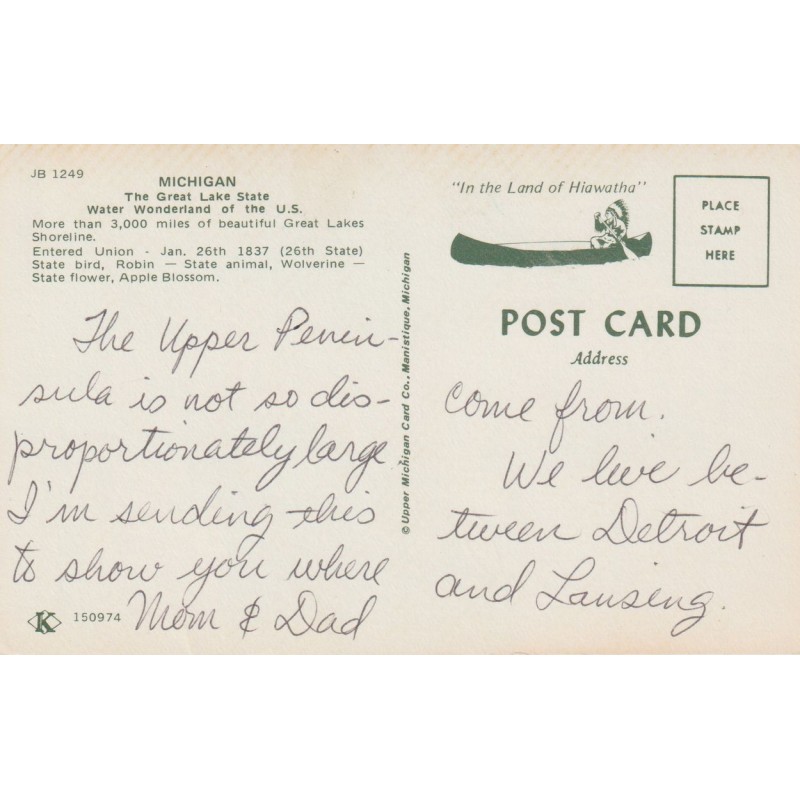 JB 1249
MICHIGAN
The Great Lake State
Water Wonderland of the U.S.
More than 3,000 miles of beautiful Great Lakes
Shoreline.
Entered Union - Jan. 26th 1837 (26th State)
State bird, Robin — State animal, Wolverine —
State flower, Apple Blossom.
The Upper Penin-
sula is not so dis-
proportionately large.
I'm sending this
to show you where
Mom & Dad
K 150974
© Upper Michigan Card Co., Manistique, Michigan
"In the Land of Hiawatha"
PLACE
STAMP
HERE
POST CARD
Address
come from.
We live be-
tween Detroit
and Lansing.